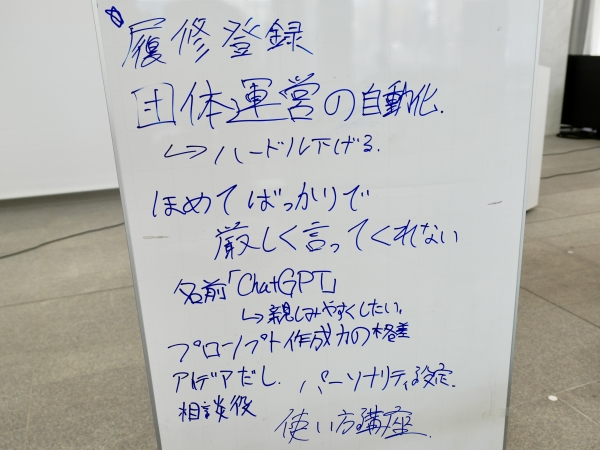 履修登録
団体運営の自動化.
↳ハードル下げる.
ほめてばっかりで
厳しく言ってくれない
名前「ChatGPT」
↳親しみやすくしたい.
プロンプト作成力の格差
アイデアだし. パーソナリティ設定.
相談役
使い方講座.